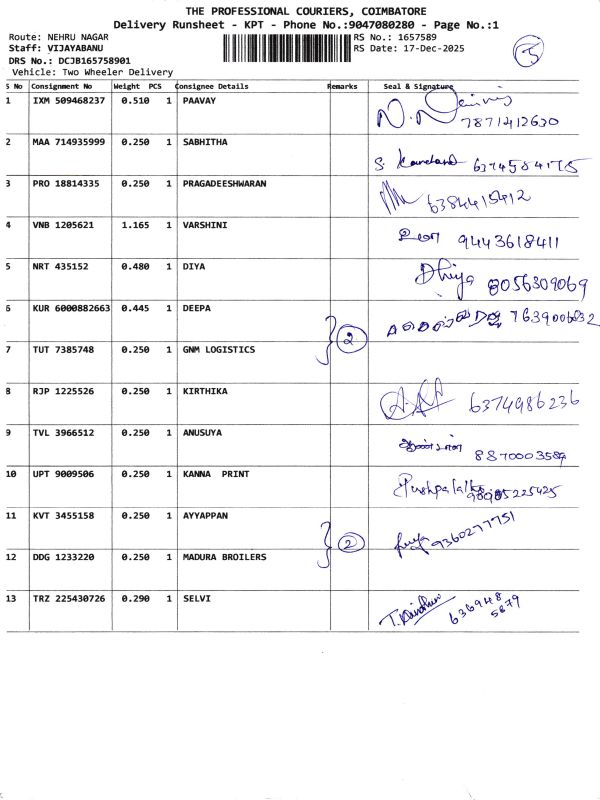 THE PROFESSIONAL COURIERS, COIMBATORE
Delivery Runsheet - KPT - Phone No.:9047080280 - Page No.:1
Route: NEHRU NAGAR RS No.: 1657589
Staff: VIJAYABANU RS Date: 17-Dec-2025
DRS No.: DCJB165758901
Vehicle: Two Wheeler Delivery
S No Consignment No Weight PCS Consignee Details Remarks Seal & Signature
1 IXM 509468237 0.510 1 PAAVAY
7871412630
2 MAA 714935999 0.250 1 SABHITHA
S. 6374584175
3 PRO 18814335 0.250 1 PRAGADEESHWARAN
6384415412
4 VNB 1205621 1.165 1 VARSHINI
உமா 9443618411
5 NRT 435152 0.480 1 DIYA
Dhiya 8056309069
6 KUR 6000882663 0.445 1 DEEPA
2
7 TUT 7385748 0.250 1 GNM LOGISTICS
8 RJP 1225526 0.250 1 KIRTHIKA
6374986236
9 TVL 3966512 0.250 1 ANUSUYA
8870003589
10 UPT 9009506 0.250 1 KANNA PRINT
11 KVT 3455158 0.250 1 AYYAPPAN
9360277751
2
12 DDG 1233220 0.250 1 MADURA BROILERS
13 TRZ 225430726 0.290 1 SELVI
636948
5879